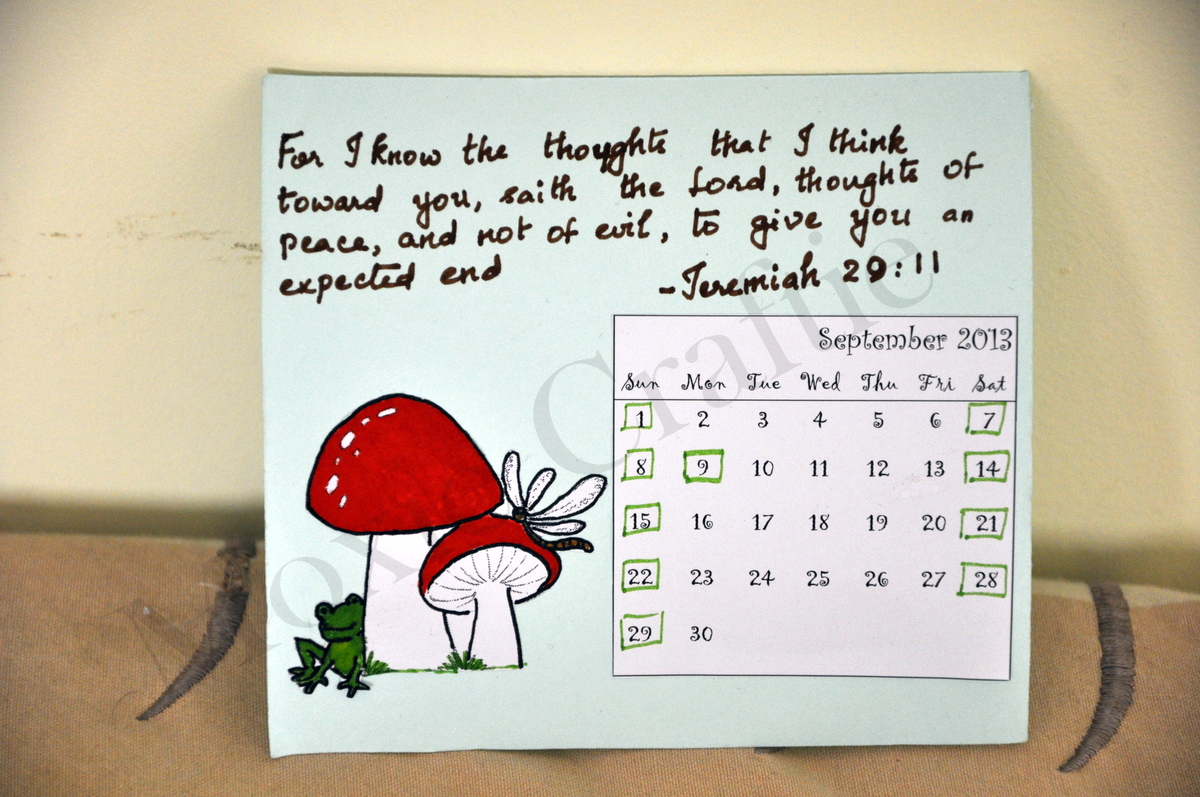 For I know the thoughts that I think
toward you, saith the Lord, thoughts of
peace, and not of evil, to give you an
expected end
-Jeremiah 29:11
September 2013
Sun Mon Tue Wed Thu Fri Sat
1 2 3 4 5 6 7
8 9 10 11 12 13 14
15 16 17 18 19 20 21
22 23 24 25 26 27 28
29 30
Craftie